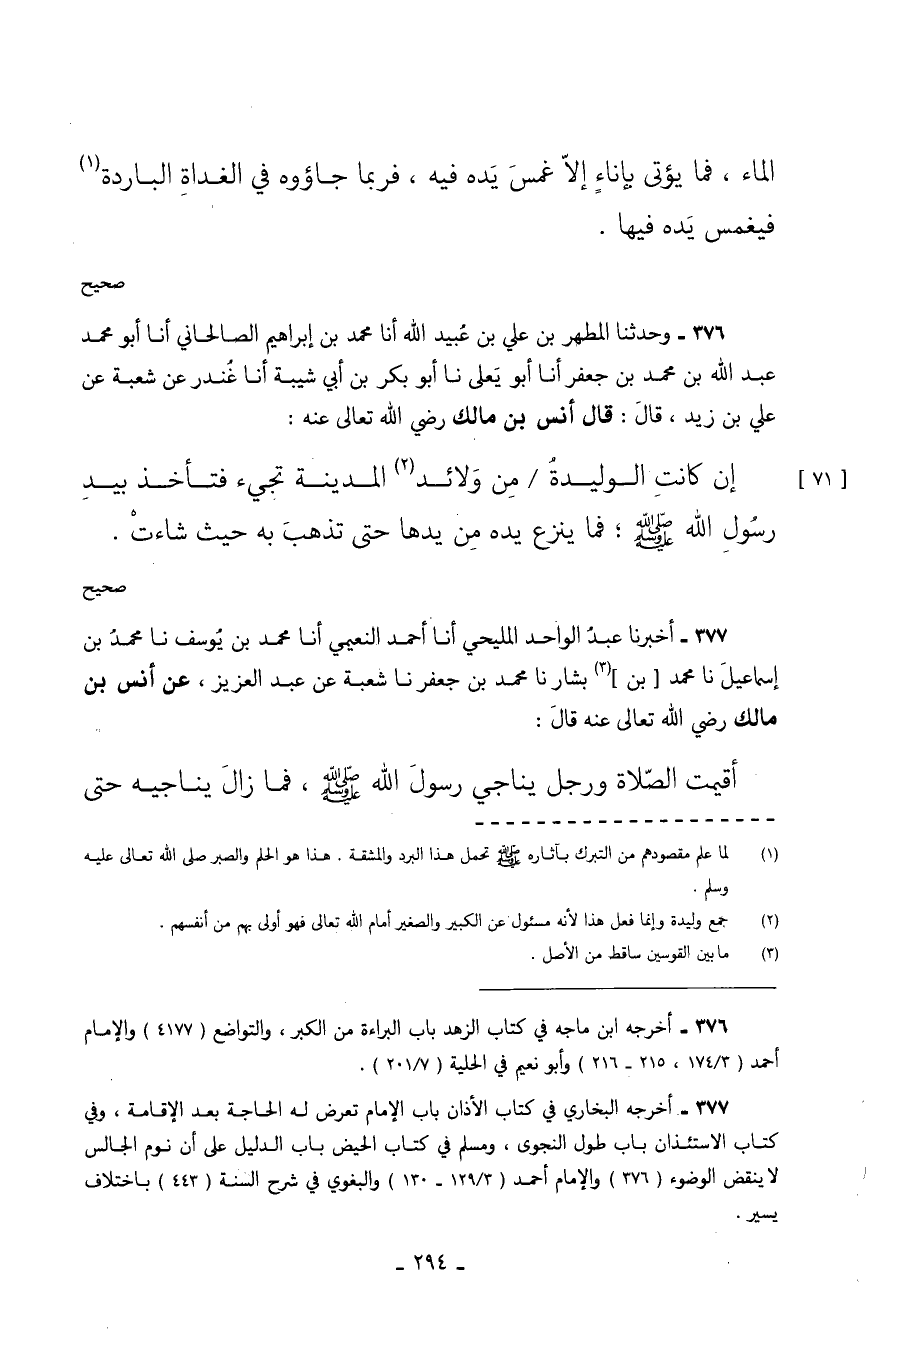 الماء ، فما يؤتى بإناءٍ إلاّ غمسَ يَده فيه ، فربما جاؤوه في الغداةِ الباردة(١)
فيغمس يَده فيها .
صحيح
٣٧٦ ـ وحدثنا المطهر بن علي بن عُبيد الله أنا محمد بن إبراهيم الصالحاني أنا أبو محمد
عبد الله بن محمد بن جعفر أنا أبو يَعلى نا أبو بكر بن أبي شيبة أنا غُندر عن شعبة عن
علي بن زيد ، قالَ : قال أنس بن مالك رضي الله تعالى عنه :
[ ٧١ ] إن كانتِ الوليدةُ / مِن وَلائد(٢) المدينة تجيء فتأخذ بيدِ
رسُولِ الله ﷺ ؛ فما ينزع يده مِن يدها حتى تذهبَ به حيث شاءتْ .
صحيح
٣٧٧ ـ أخبرنا عبدُ الواحد المليحي أنا أحمد النعيمي أنا محمد بن يُوسف نا محمدُ بن
إسماعيلَ نا محمد [ بن ](٣) بشار نا محمد بن جعفر نا شعبة عن عبد العزيز ، عن أنس بن
مالك رضي الله تعالى عنه قالَ :
أقيمت الصّلاة ورجل يناجي رسولَ الله ﷺ ، فما زالَ يناجيه حتى
(١) لما علم مقصودهم من التبرك بآثاره ﷺ تحمل هذا البرد والمشقة . هذا هو الحلم والصبر صلى الله تعالى عليه
وسلم .
(٢) جمع وليدة وإنما فعل هذا لأنه مسئول عن الكبير والصغير أمام الله تعالى فهو أولى بهم من أنفسهم .
(٣) ما بين القوسين ساقط من الأصل .
٣٧٦ ـ أخرجه ابن ماجه في كتاب الزهد باب البراءة من الكبر ، والتواضع ( ٤١٧٧ ) والإمام
أحمد ( ١٧٤/٣ ، ٢١٥ ـ ٢١٦ ) وأبو نعيم في الحلية ( ٢٠١/٧ ) .
٣٧٧ ـ أخرجه البخاري في كتاب الأذان باب الإمام تعرض له الحاجة بعد الإقامة ، وفي
كتاب الاستئذان باب طول النجوى ، ومسلم في كتاب الحيض باب الدليل على أن نوم الجالس
لا ينقض الوضوء ( ٣٧٦ ) والإمام أحمد ( ١٢٩/٣ ـ ١٣٠ ) والبغوي في شرح السنة ( ٤٤٣ ) باختلاف
يسير .
ـ ٢٩٤ ـ